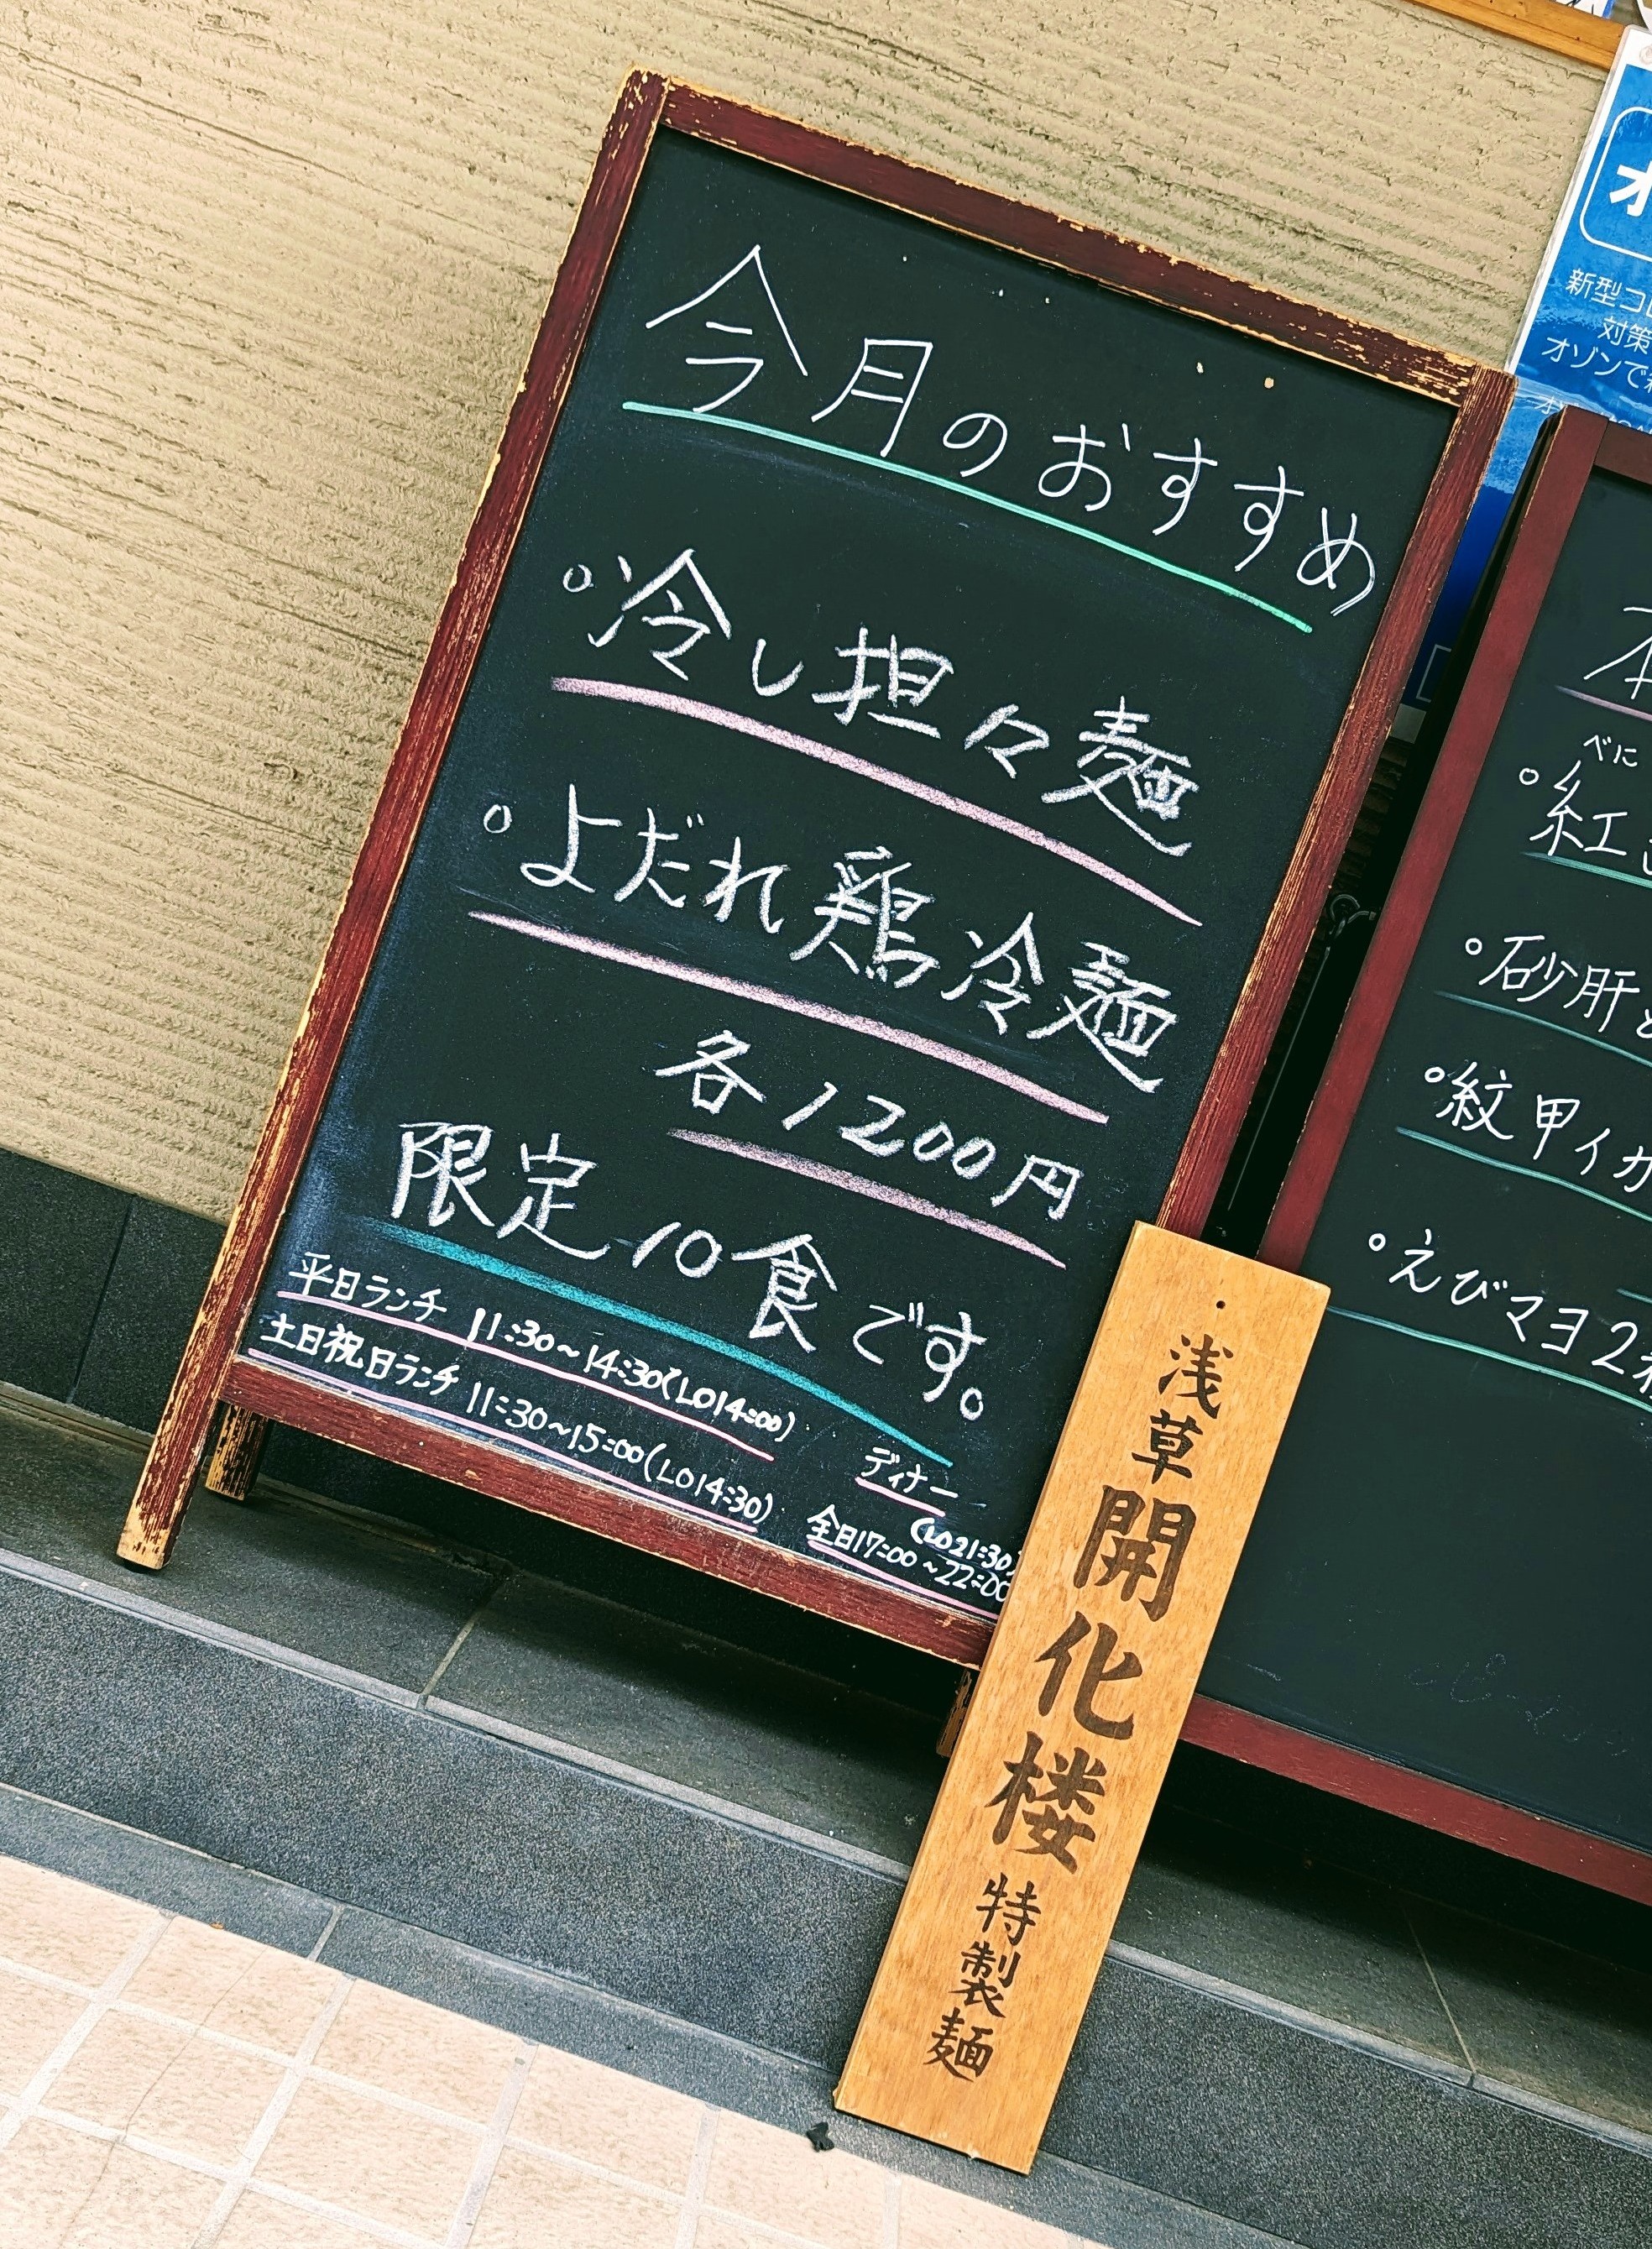 今月のおすすめ
○冷し担々麺
○よだれ鶏冷麺
各1200円
限定10食です。
平日ランチ 11:30~14:30(LO14:00)
土日祝日ランチ 11:30~15:00(LO14:30)
ディナー
(LO21:30)
全日17:00~22:00
浅草開化楼特製麺
新型コロ
対策
オゾンで
べに
○紅
○砂肝と
○紋甲イカ
○えびマヨ2